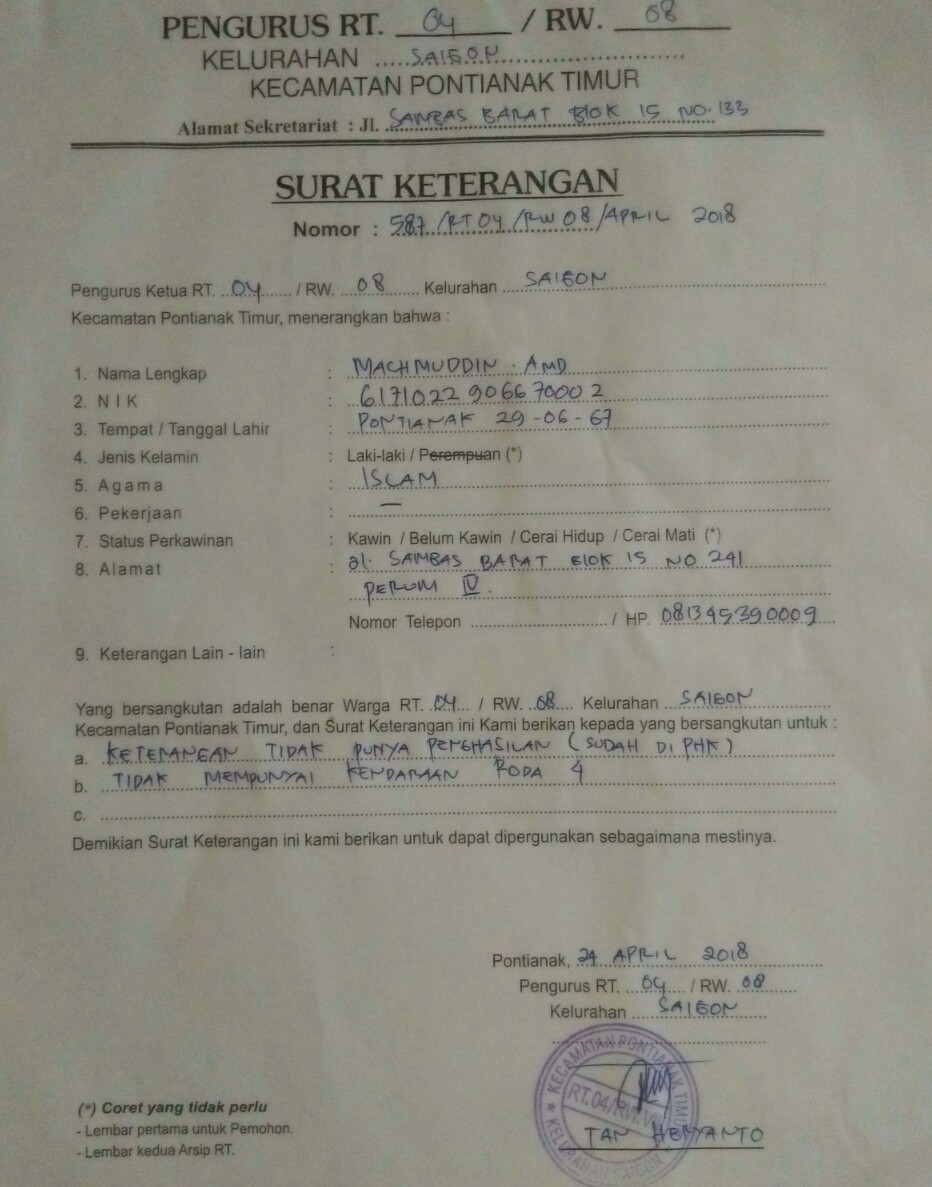 PENGURUS RT. 04 / RW. 08
KELURAHAN SAIGON
KECAMATAN PONTIANAK TIMUR
Alamat Sekretariat : Jl. SAMBAS BARAT BLOK 15 NO. 133
SURAT KETERANGAN
Nomor : 587/RT04/RW08/APRIL 2018
Pengurus Ketua RT. 04 / RW. 08 Kelurahan SAIGON
Kecamatan Pontianak Timur, menerangkan bahwa :
1. Nama Lengkap : MACHMUDDIN . AMD
2. N I K : 6171022906670002
3. Tempat / Tanggal Lahir : PONTIANAK 29-06-67
4. Jenis Kelamin : Laki-laki / Perempuan (*)
5. A g a m a : ISLAM
6. Pekerjaan : —
7. Status Perkawinan : Kawin / Belum Kawin / Cerai Hidup / Cerai Mati (*)
8. Alamat : Jl. SAMBAS BARAT BLOK 15 NO 241
PERUM IV.
Nomor Telepon / HP. 081345390009
9. Keterangan Lain - lain :
Yang bersangkutan adalah benar Warga RT. 04 / RW. 08 Kelurahan SAIGON
Kecamatan Pontianak Timur, dan Surat Keterangan ini Kami berikan kepada yang bersangkutan untuk :
a. KETERANGAN TIDAK PUNYA PENGHASILAN (SUDAH DI PHK)
b. TIDAK MEMPUNYAI KENDARAAN RODA 4
c.
Demikian Surat Keterangan ini kami berikan untuk dapat dipergunakan sebagaimana mestinya.
Pontianak, 24 APRIL 2018
Pengurus RT. 04 / RW. 08
Kelurahan SAIGON
KECAMATAN PONTIANAK TIMUR
RT.04/RW.VIII
KELURAHAN SAIGON
TAN HENYANTO
(*) Coret yang tidak perlu
- Lembar pertama untuk Pemohon.
- Lembar kedua Arsip RT.